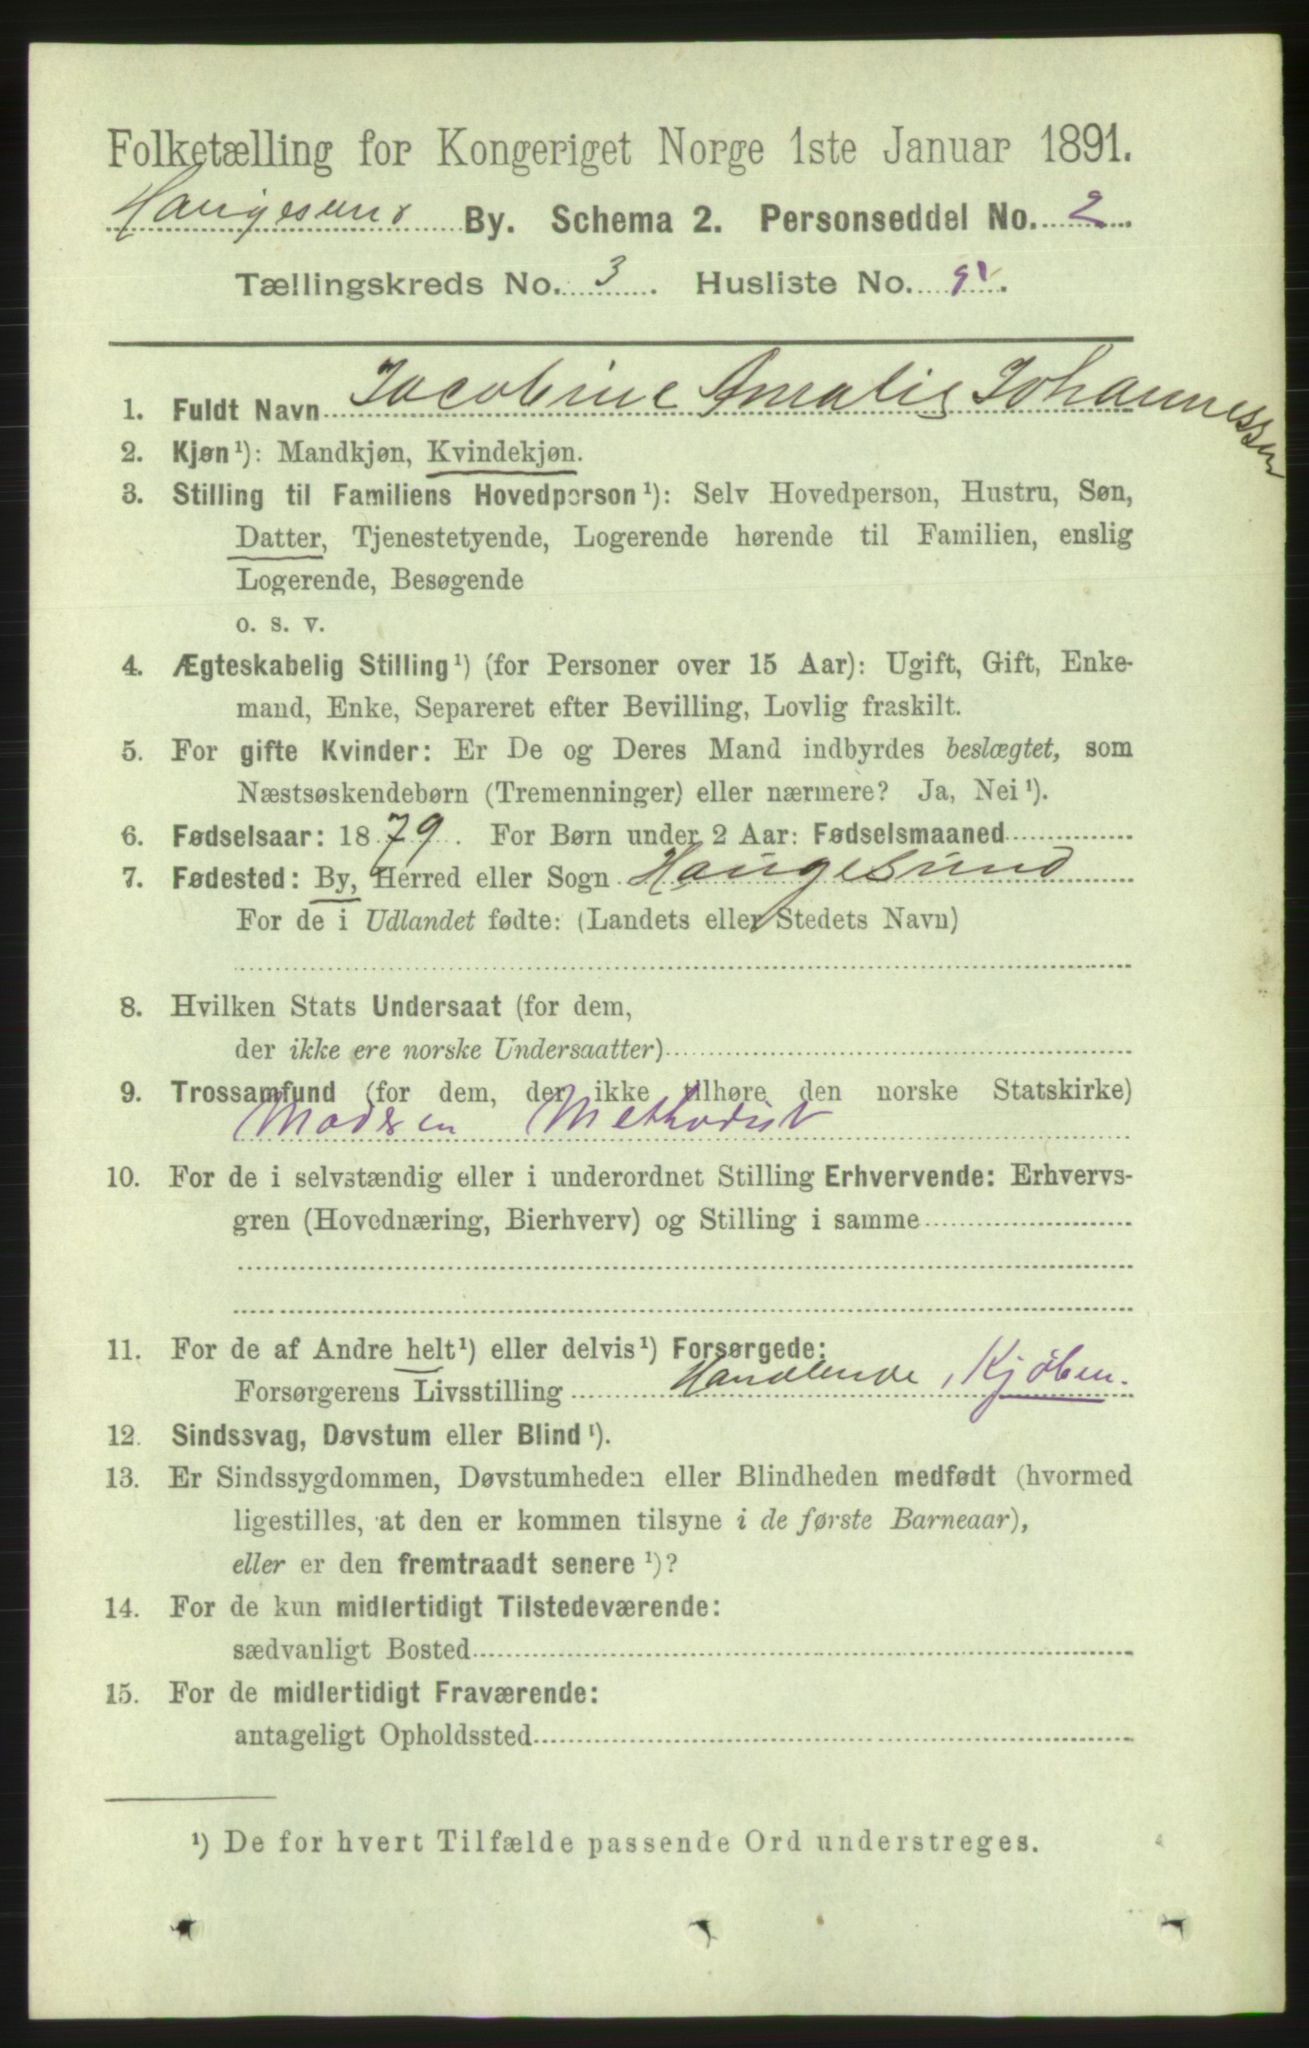 Folketælling for Kongeriget Norge 1ste Januar 1891.
Haugesund By. Schema 2. Personseddel No. 2
Tællingskreds No. 3. Husliste No. 91.
1. Fuldt Navn Jacobine Amalie Johannessen
2. Kjøn¹): Mandkjøn, Kvindekjøn.
3. Stilling til Familiens Hovedperson¹): Selv Hovedperson, Hustru, Søn,
Datter, Tjenestetyende, Logerende hørende til Familien, enslig
Logerende, Besøgende
o. s. v.
4. Ægteskabelig Stilling¹) (for Personer over 15 Aar): Ugift, Gift, Enke-
mand, Enke, Separeret efter Bevilling, Lovlig fraskilt.
5. For gifte Kvinder: Er De og Deres Mand indbyrdes beslægtet, som
Næstsøskendebørn (Tremenninger) eller nærmere? Ja, Nei¹).
6. Fødselsaar: 1879. For Børn under 2 Aar: Fødselsmaaned
7. Fødested: By, Herred eller Sogn Haugesund
For de i Udlandet fødte: (Landets eller Stedets Navn)
8. Hvilken Stats Undersaat (for dem,
der ikke ere norske Undersaatter)
9. Trossamfund (for dem, der ikke tilhøre den norske Statskirke)
Methodist
10. For de i selvstændig eller i underordnet Stilling Erhvervende: Erhvervs-
gren (Hovednæring, Bierhverv) og Stilling i samme
11. For de af Andre helt¹) eller delvis¹) Forsørgede:
Forsørgerens Livsstilling Handlende, Kjøbm.
12. Sindssvag, Døvstum eller Blind¹).
13. Er Sindssygdommen, Døvstumheden eller Blindheden medfødt (hvormed
ligestilles, at den er kommen tilsyne i de første Barneaar),
eller er den fremtraadt senere¹)?
14. For de kun midlertidigt Tilstedeværende:
sædvanligt Bosted
15. For de midlertidigt Fraværende:
antageligt Opholdssted
¹) De for hvert Tilfælde passende Ord understreges.